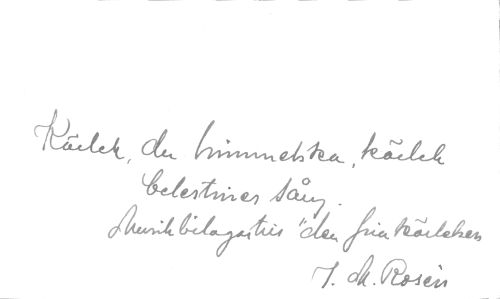 Kärlek, du himmelska, kärlek
Celestines sång.
Musikbilaga till "den fria kärleken
J. M. Rosén